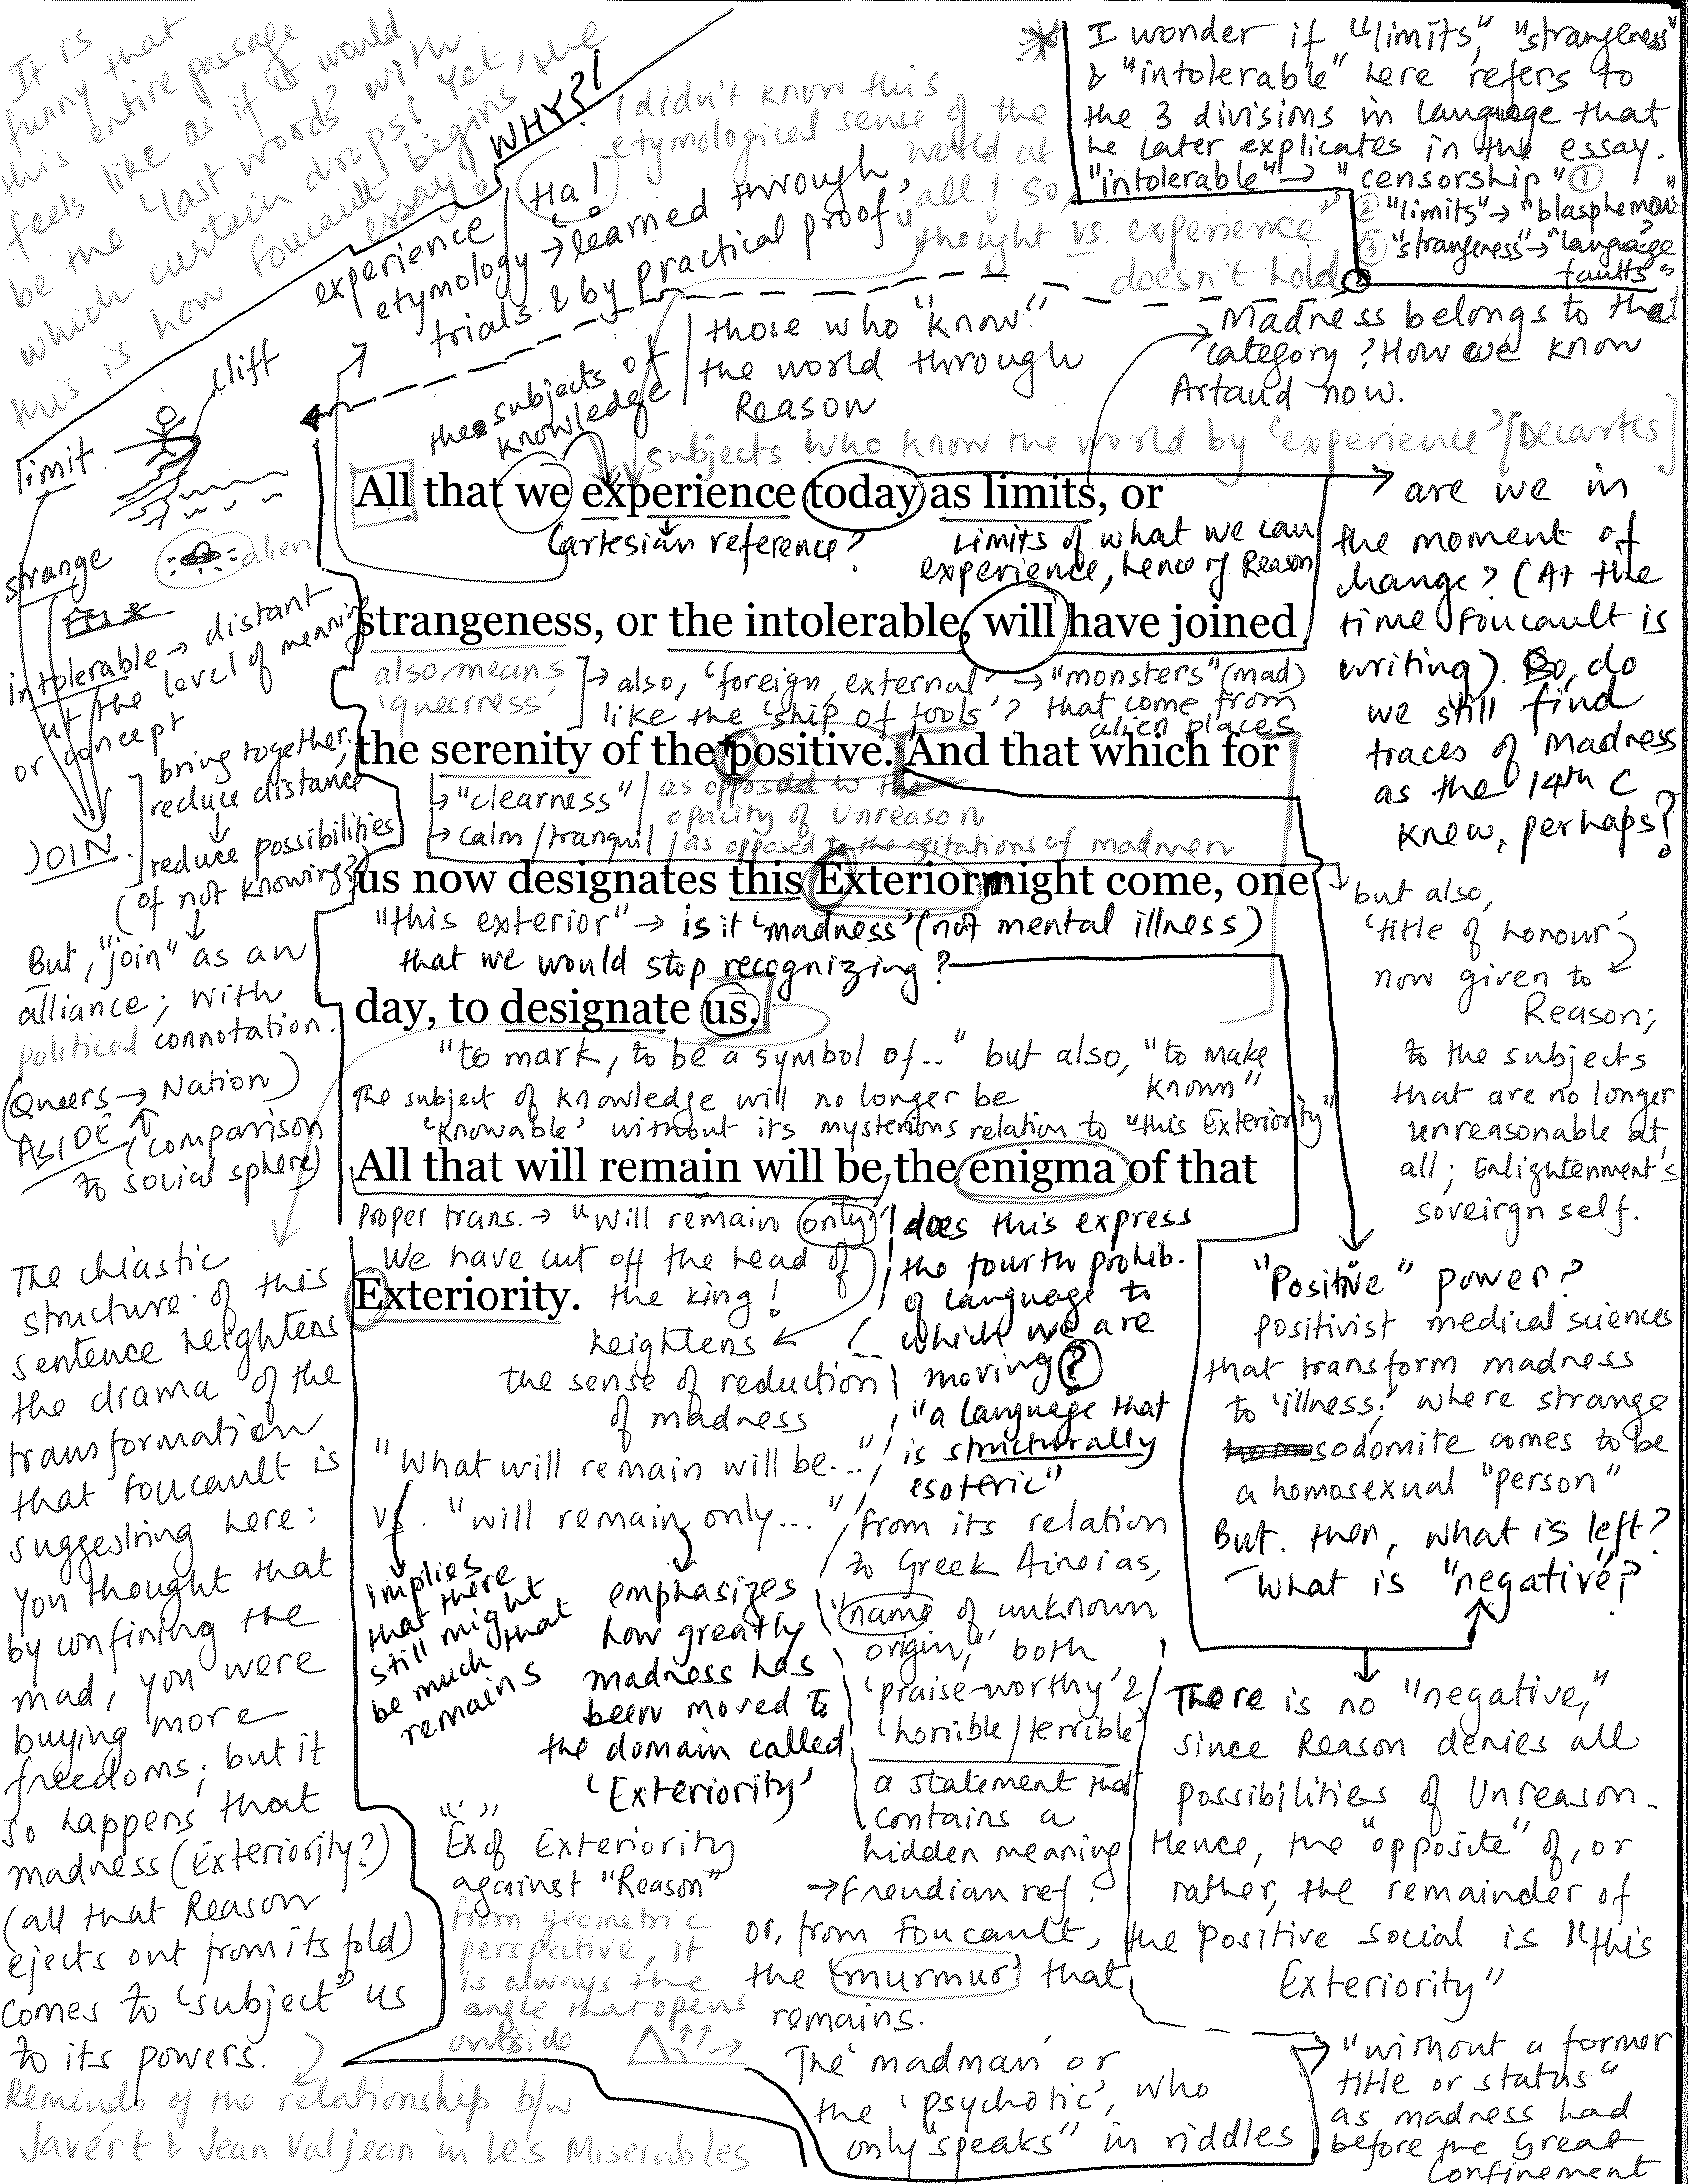 It is
funny that
this entire passage
feels like as if it would
be the "last words" with
which curtain drops! Yet, the
this is how Foucault begins
essay.
WHY?!
Ha!
I didn't know this
etymological sense of the
world at
all! So,
thought vs. experience
doesn't hold
experience
etymology → learned through
trials & by practical proof
I wonder if "limits", "strangeness"
& "intolerable" here refers to
the 3 divisions in language that
he later explicates in the essay.
"intolerable" → "censorship" ①
② "limits" → "blasphemous"
③ "strangeness" → "language
faults"
limit
cliff
strange
alien
intolerable → distant
at the level of meaning
or concept
JOIN.
bring together,
reduce distance
↓
reduce possibilities
(of not knowing?)
the subjects of
knowledge
those who "know"
the world through
Reason
Madness belongs to that
category? How we know
Artaud now.
subjects who know the world by 'experience' [Decartes]
All that we experience today as limits, or
Cartesian reference?
Limits of what we can
experience, hence of Reason
strangeness, or the intolerable, will have joined
also means
'queerness'
→ also, 'foreign, external' → "monsters" (mad)
like the 'ship of fools'? that come from
alien places
the serenity of the positive. And that which for
→ "clearness"
as opposed to the
opacity of Unreason
→ calm/tranquil
as opposed to the agitations of madmen
us now designates this Exterior might come, one
"this exterior" → is it 'madness' (not mental illness)
that we would stop recognizing?
day, to designate us.
"to mark, to be a symbol of.." but also, "to make
known"
The subject of knowledge will no longer be
'knowable' without its mysterious relation to "this Exteriority"
All that will remain will be the enigma of that
Proper trans. → "will remain only"
We have cut off the head of
Exteriority.
the king!
heightens
the sense of reduction
of madness
are we in
the moment of
change? (At the
time Foucault is
writing). So, do
we still find
traces of Madness
as the 14th C
knew, perhaps?
but also,
'title of honour'
now given to
Reason;
to the subjects
that are no longer
unreasonable at
all; Enlightenment's
soveirgn self.
But, "join" as an
alliance; with
political connotation.
(Queers → Nation)
ASIDE (comparison
to social sphere)
The chiastic
structure of this
sentence heightens
the drama of the
transformation
that Foucault is
suggesting here:
you thought that
by confining the
mad, you were
buying more
freedoms; but it
so happens that
madness (Exteriority?)
(all that Reason
ejects out from its fold)
comes to "subject" us
to its powers.
Reminds of the relationship b/w
Javert & Jean Valjean in Les Miserables
does this express
the fourth prohib.
of language to
which we are
moving?
"a language that
is structurally
esoteric"
"What will remain will be..."
vs. "will remain only..."
implies
that there
still might
be much that
remains
emphasizes
how greatly
madness has
been moved to
the domain called
'Exteriority'
from its relation
to Greek Aineias,
'name of unknown
origin,' both
'praise-worthy' &
'horrible/terrible'
a statement that
contains a
hidden meaning
→ Freudian ref.
or, from Foucault,
the (murmur) that
remains.
The 'madman' or
the 'psychotic', who
only "speaks" in riddles
Ex of Exteriority
against "Reason"
from geometric
perspective, it
is always the
angle that opens
outside
"Positive" power?
positivist medical sciences
that transform madness
to 'illness;' where strange
sodomite comes to be
a homosexual "person"
But. then, what is left?
What is "negative"?
There is no "negative,"
since Reason denies all
possibilities of Unreason.
Hence, the "opposite" of, or
rather, the remainder of
the positive social is "this
Exteriority"
"without a former
title or status"
as madness had
before the Great
Confinement